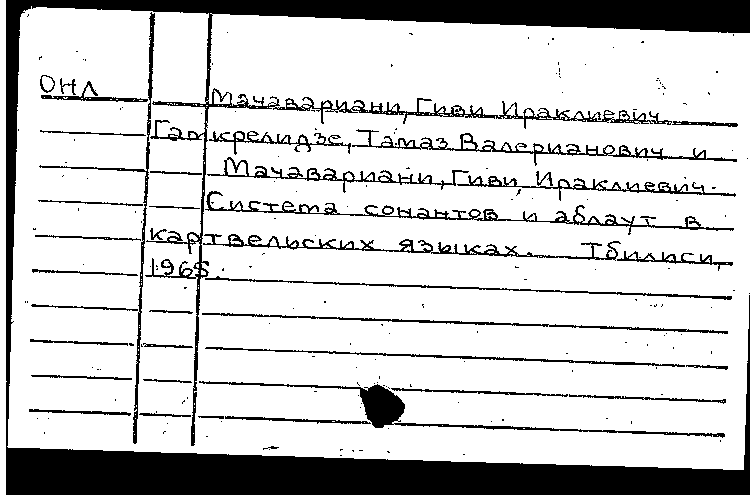 ОНЛ
Мачавариани, Гиви Ираклиевич.
Гамкрелидзе, Тамаз Валерианович и
Мачавариани, Гиви Ираклиевич.
Система сонантов и аблаут в
картвельских языках. Тбилиси,
1965.